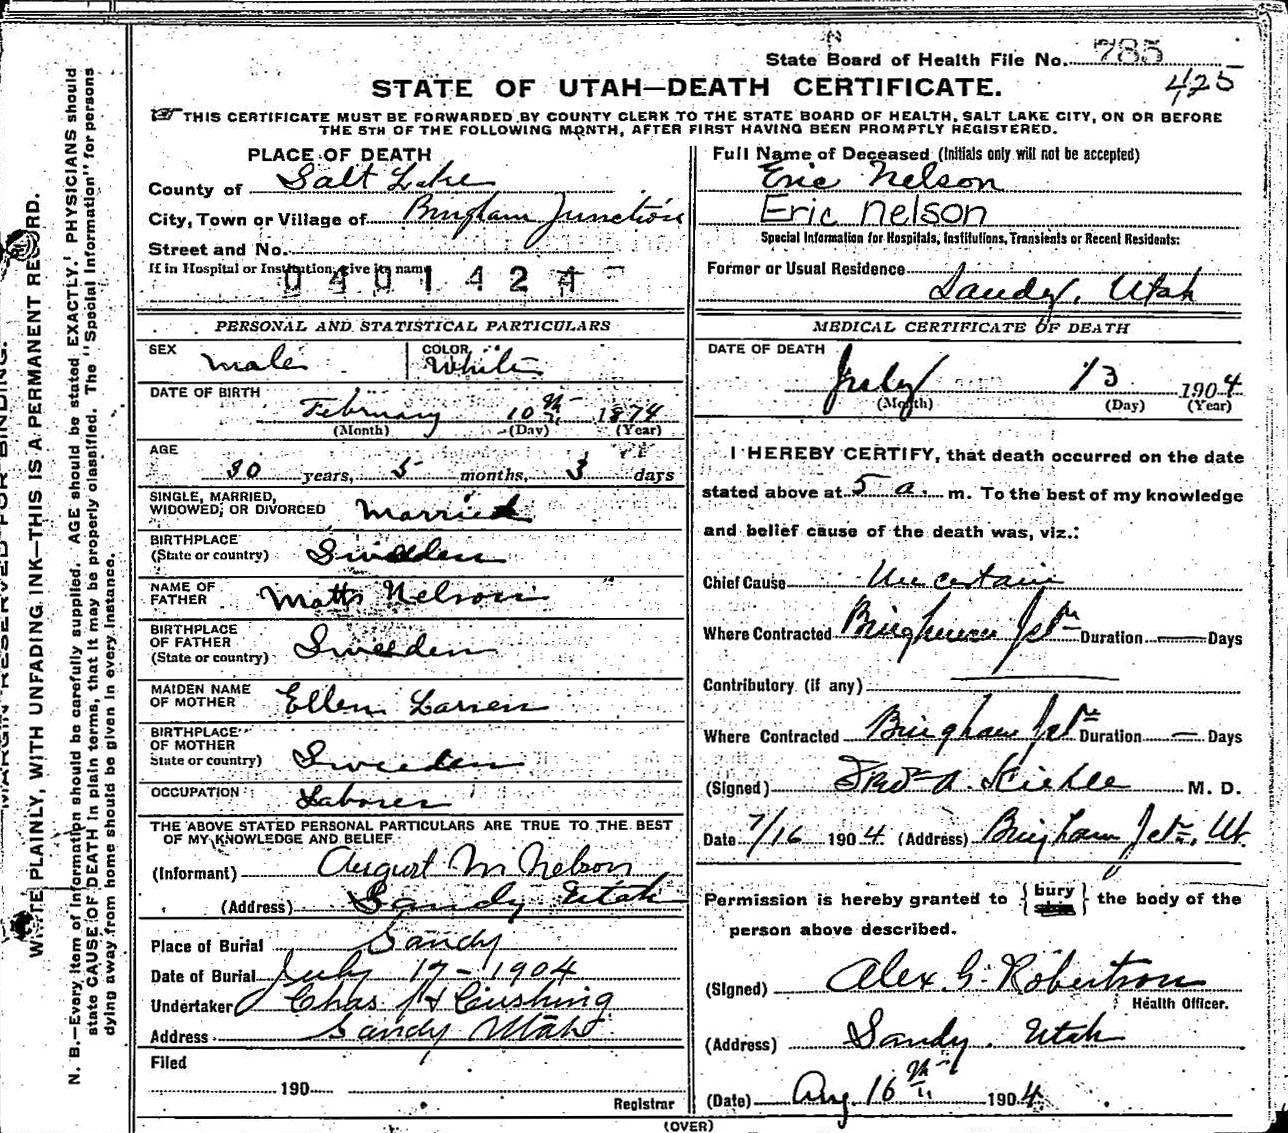 State Board of Health File No. 785
425
STATE OF UTAH—DEATH CERTIFICATE.
THIS CERTIFICATE MUST BE FORWARDED BY COUNTY CLERK TO THE STATE BOARD OF HEALTH, SALT LAKE CITY, ON OR BEFORE
THE 5TH OF THE FOLLOWING MONTH, AFTER FIRST HAVING BEEN PROMPTLY REGISTERED.
PLACE OF DEATH
County of Salt Lake
City, Town or Village of Bingham Junction
Street and No.
If in Hospital or Institution, give its name
0401424
PERSONAL AND STATISTICAL PARTICULARS
SEX male COLOR White
DATE OF BIRTH
February 10th 1874
(Month) (Day) (Year)
AGE
30 years, 5 months, 3 days
SINGLE, MARRIED,
WIDOWED, OR DIVORCED Married
BIRTHPLACE
(State or country) Sweden
NAME OF
FATHER Matts Nelson
BIRTHPLACE
OF FATHER
(State or country) Sweden
MAIDEN NAME
OF MOTHER Ellen Larsen
BIRTHPLACE
OF MOTHER
State or country) Sweden
OCCUPATION Laborer
THE ABOVE STATED PERSONAL PARTICULARS ARE TRUE TO THE BEST
OF MY KNOWLEDGE AND BELIEF
(Informant) August M Nelson
(Address) Sandy Utah
Place of Burial Sandy
Date of Burial July 17-1904
Undertaker Chas H Cushing
Address Sandy Utah
Filed
190
Registrar
Full Name of Deceased (Initials only will not be accepted)
Eric Nelson
Eric Nelson
Special Information for Hospitals, Institutions, Transients or Recent Residents:
Former or Usual Residence
Sandy, Utah
MEDICAL CERTIFICATE OF DEATH
DATE OF DEATH
July 13 1904
(Month) (Day) (Year)
I HEREBY CERTIFY, that death occurred on the date
stated above at 5 a. m. To the best of my knowledge
and belief cause of the death was, viz.:
Chief Cause Uncertain
Where Contracted Bingham Jctn Duration — Days
Contributory (if any) —
Where Contracted Bingham Jctn Duration — Days
(Signed) Fred A. Kiehle M. D.
Date 7/16 1904 (Address) Bingham Jctn, Ut.
Permission is hereby granted to { bury } the body of the
person above described.
(Signed) Alex G. Robertson
Health Officer.
(Address) Sandy. Utah
(Date) Aug 16th 1904
(OVER)
MARGIN RESERVED FOR BINDING.
WRITE PLAINLY, WITH UNFADING INK—THIS IS A PERMANENT RECORD.
N. B.—Every item of information should be carefully supplied. AGE should be stated EXACTLY. PHYSICIANS should
state CAUSE OF DEATH in plain terms, that it may be properly classified. The "Special Information" for persons
dying away from home should be given in every instance.